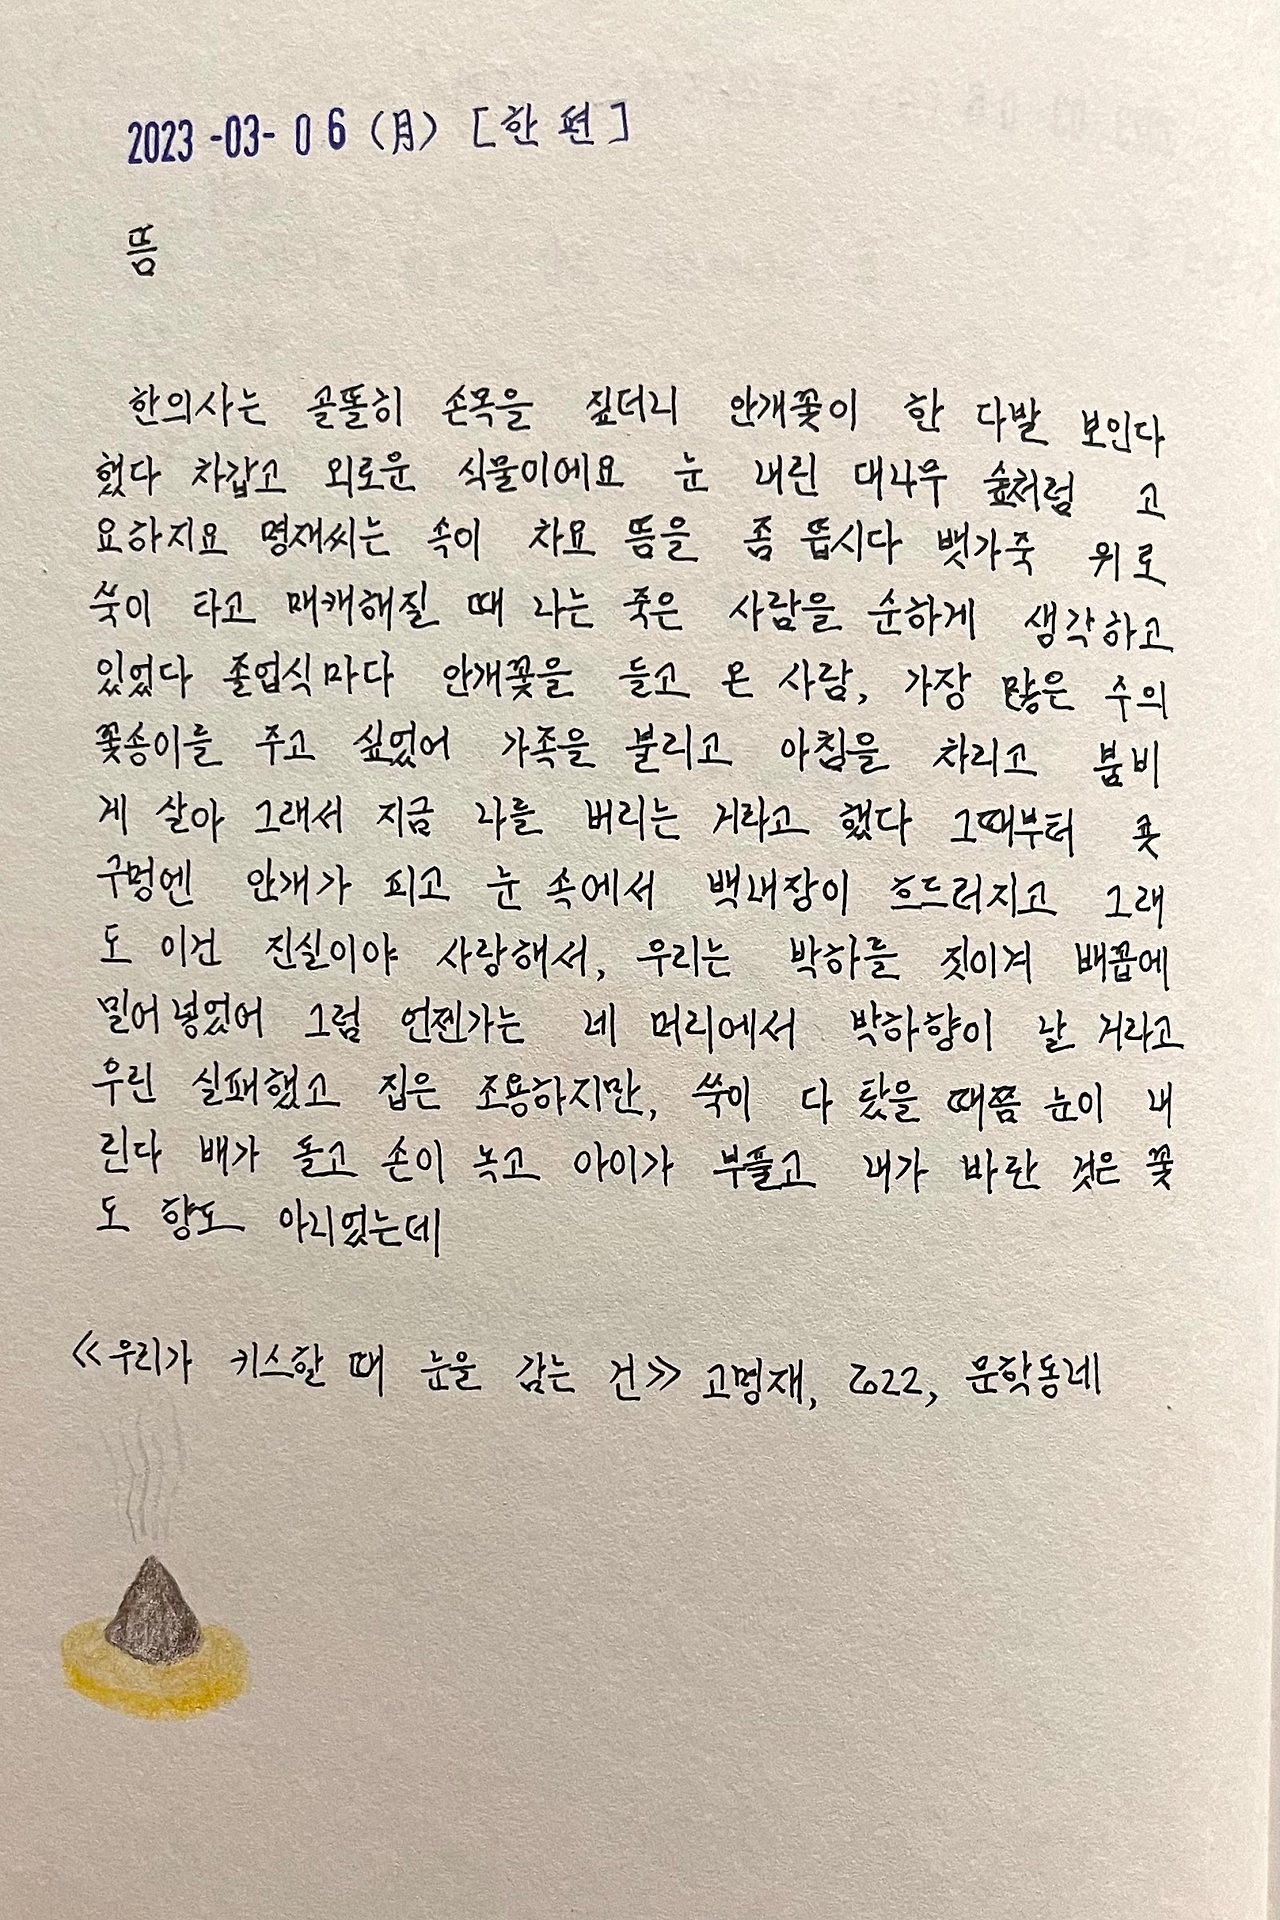 2023-03-06 (月) [한 편]
뜸
한의사는 골똘히 손목을 짚더니 안개꽃이 한 다발 보인다
했다 차갑고 외로운 식물이에요 눈 내린 대나무 숲처럼 고
요하지요 명재씨는 속이 차요 뜸을 좀 뜹시다 뱃가죽 위로
쑥이 타고 매캐해질 때 나는 죽은 사람을 순하게 생각하고
있었다 졸업식마다 안개꽃을 들고 온 사람, 가장 많은 수의
꽃송이를 주고 싶었어 가족을 불리고 아침을 차리고 붐비
게 살아 그래서 지금 나를 버리는 거라고 했다 그때부터 콧
구멍엔 안개가 피고 눈 속에서 백내장이 흐드러지고 그래
도 이건 진실이야 사랑해서, 우리는 박하를 짓이겨 배꼽에
밀어넣었어 그럼 언젠가는 네 머리에서 박하향이 날 거라고
우린 실패했고 집은 조용하지만, 쑥이 다 탔을 때쯤 눈이 내
린다 배가 돌고 손이 녹고 아이가 부풀고 내가 바란 것은 꽃
도 향도 아니었는데
《우리가 키스할 때 눈을 감는 건》 고명재, 2022, 문학동네